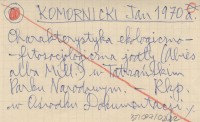 KOMORNICKI Jan 1970 r.
Charakterystyka ekologiczno-
-fitosocjologiczna jodły (Abies
alba Mill.) w Tatrzańskim
Parku Narodowym. - Rkp.
w Ośrodku Dokumentacji